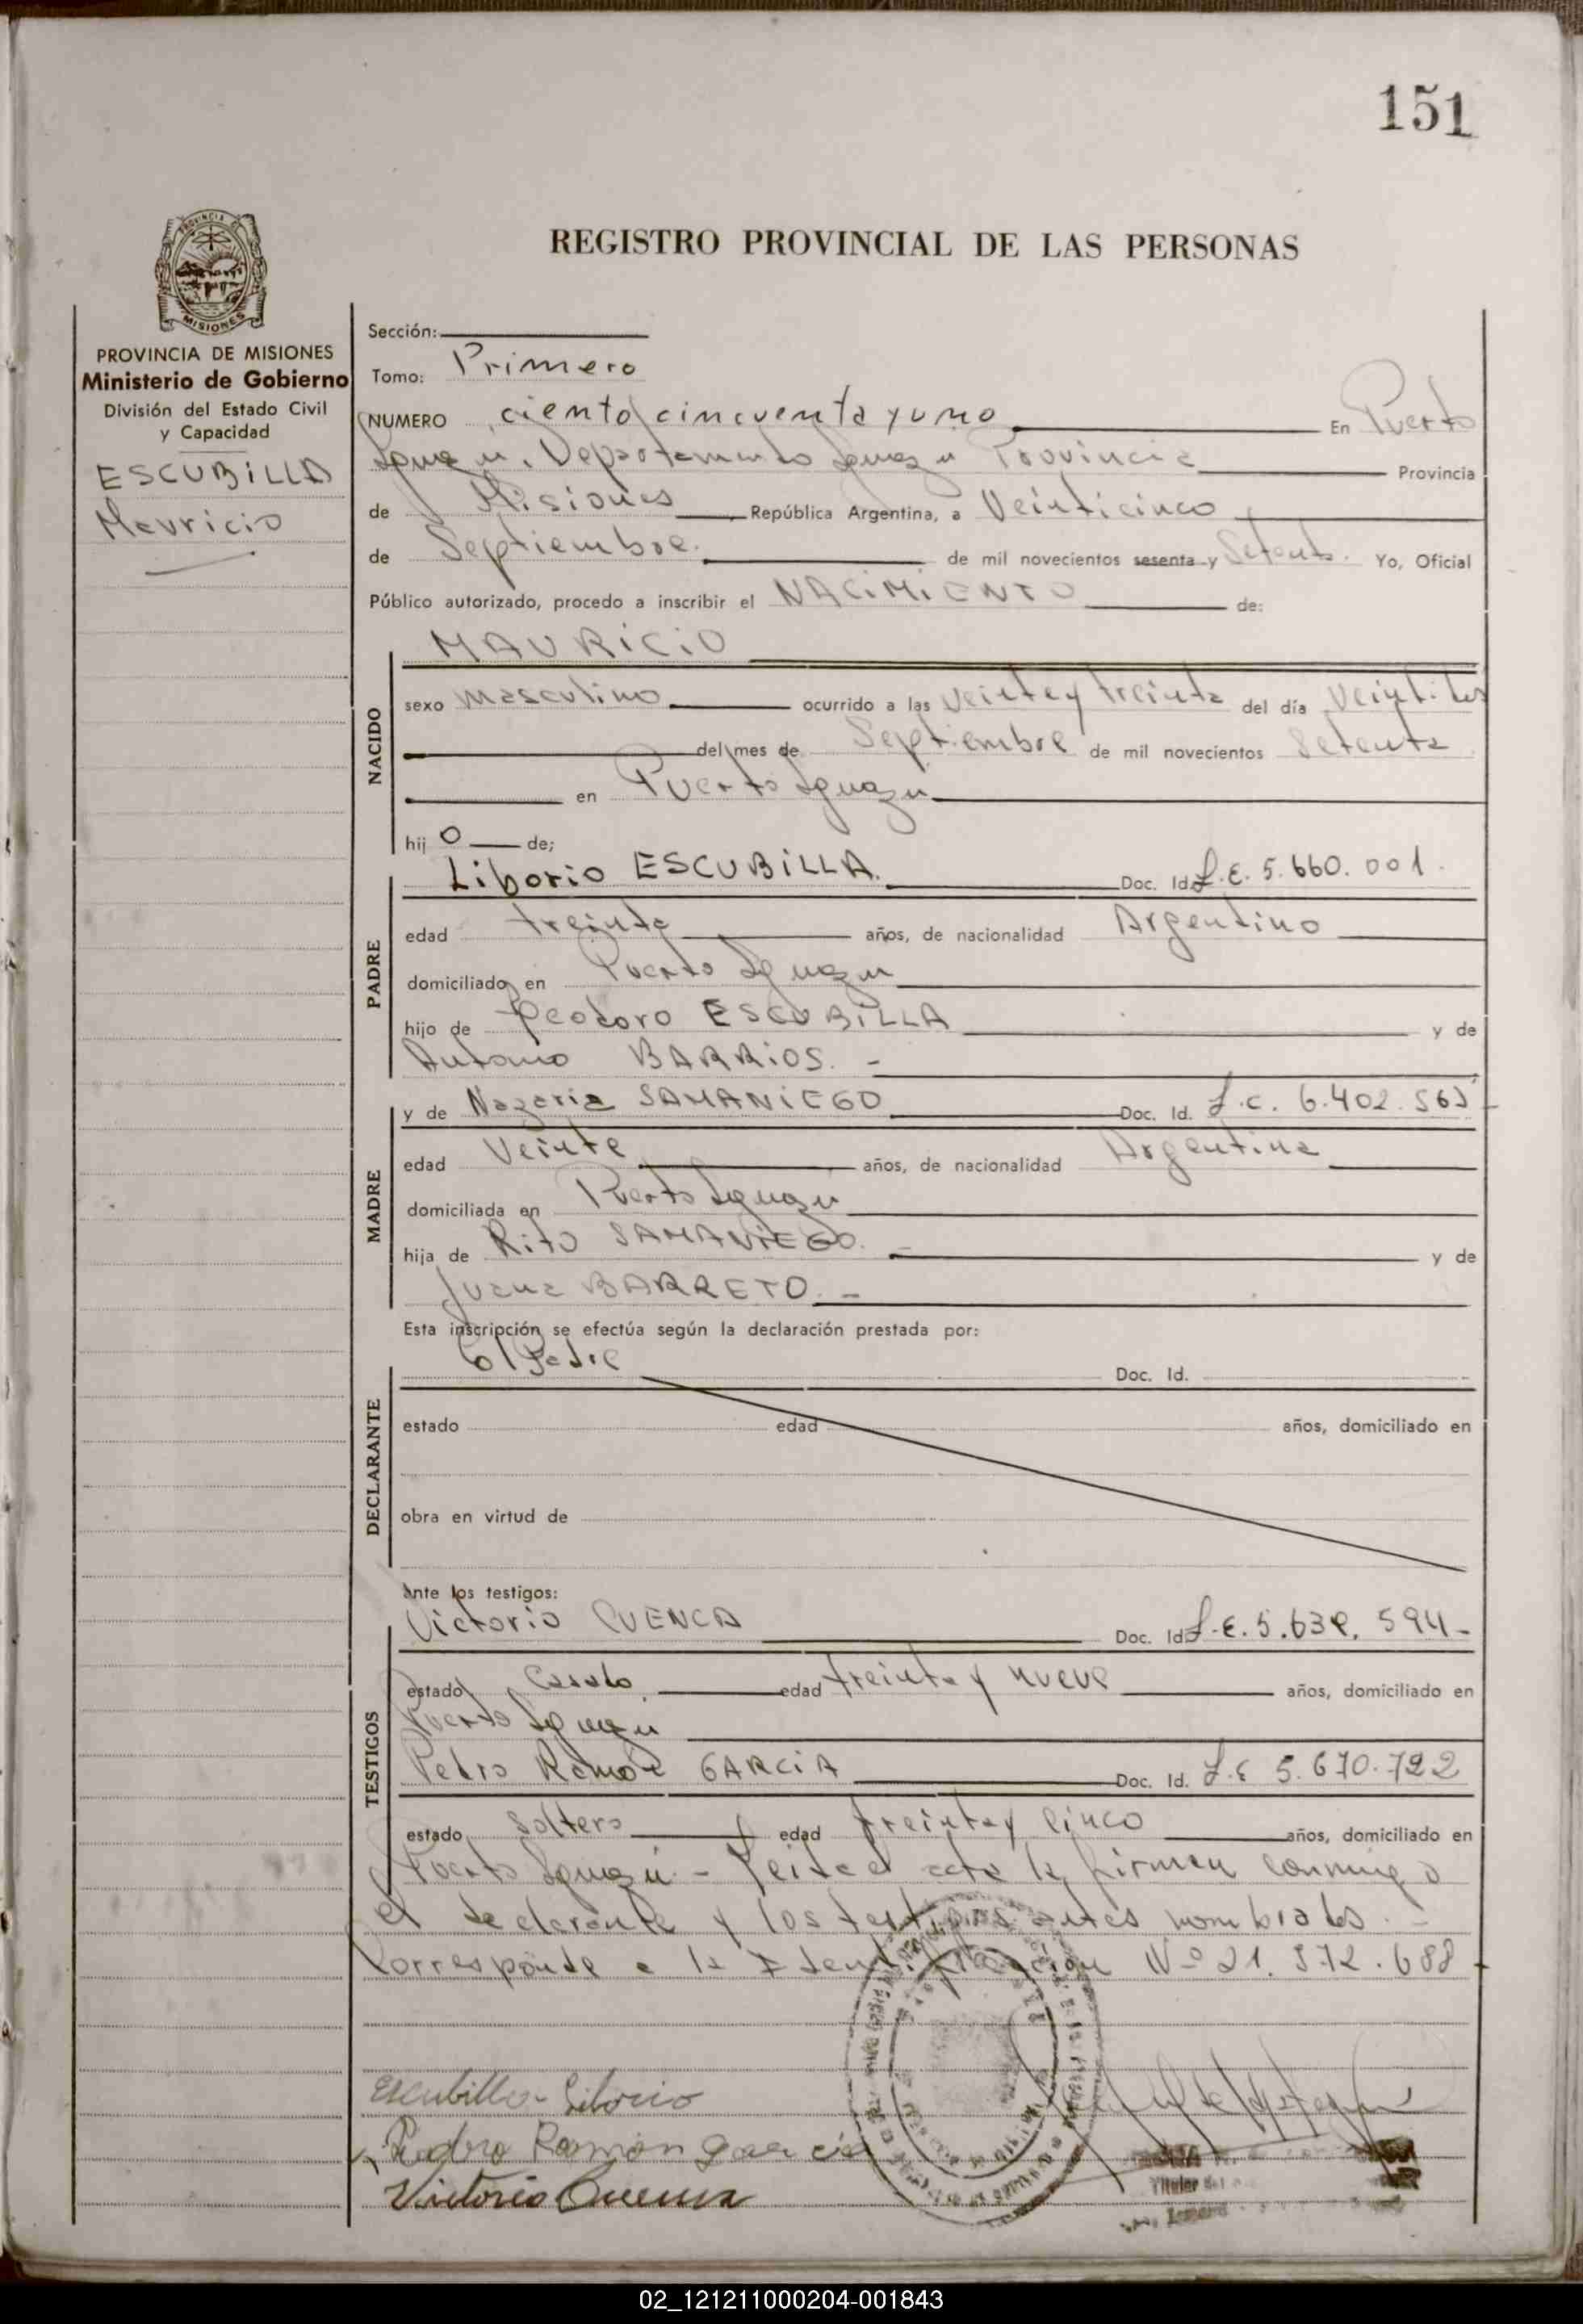 151
REGISTRO PROVINCIAL DE LAS PERSONAS
PROVINCIA
MISIONES
PROVINCIA DE MISIONES
Ministerio de Gobierno
División del Estado Civil
y Capacidad
ESCUBILLA
Mauricio
Sección:
Tomo: Primero
NUMERO ciento cincuenta y uno En Puerto
Iguazú, Departamento Iguazú Provincia Provincia
de Misiones República Argentina, a Veinticinco
de Septiembre. de mil novecientos sesenta y Setenta. Yo, Oficial
Público autorizado, procedo a inscribir el NACIMIENTO de:
MAURICIO
NACIDO
sexo masculino ocurrido a las veinte y treinta del día
del mes de Septiembre de mil novecientos Setenta
en Puerto Iguazú
hij o de;
Liborio ESCUBILLA. Doc. Id. L.E. 5.660.001.
PADRE
edad treinta años, de nacionalidad Argentino
domiciliado en Puerto Iguazú
hijo de Teodoro ESCUBILLA y de
BARRIOS. -
y de Nazaria SAMANIEGO Doc. Id. L.C. 6.402.565
MADRE
edad Veinte años, de nacionalidad Argentina
domiciliada en Puerto Iguazú
hija de Rito SAMANIEGO. - y de
Juana BARRETO. -
Esta inscripción se efectúa según la declaración prestada por:
el Padre Doc. Id.
DECLARANTE
estado edad años, domiciliado en
obra en virtud de
Ante los testigos:
Victorio CUENCA Doc. Id. L.E. 5.638.594-
TESTIGOS
estado Casado. edad treinta y nueve años, domiciliado en
Puerto Iguazú
Pedro Ramon GARCIA Doc. Id. L.E 5.670.722
estado soltero edad treinta y cinco años, domiciliado en
Puerto Iguazú. - Leida el acta la firman conmigo
el declarante y los testigos antes nombrados. -
Corresponde a la Identificación Nº 21.372.688 -
Escubilla - Liborio
Pedro Ramon garcia
Victorio Cuenca
Titular del
02_121211000204-001843